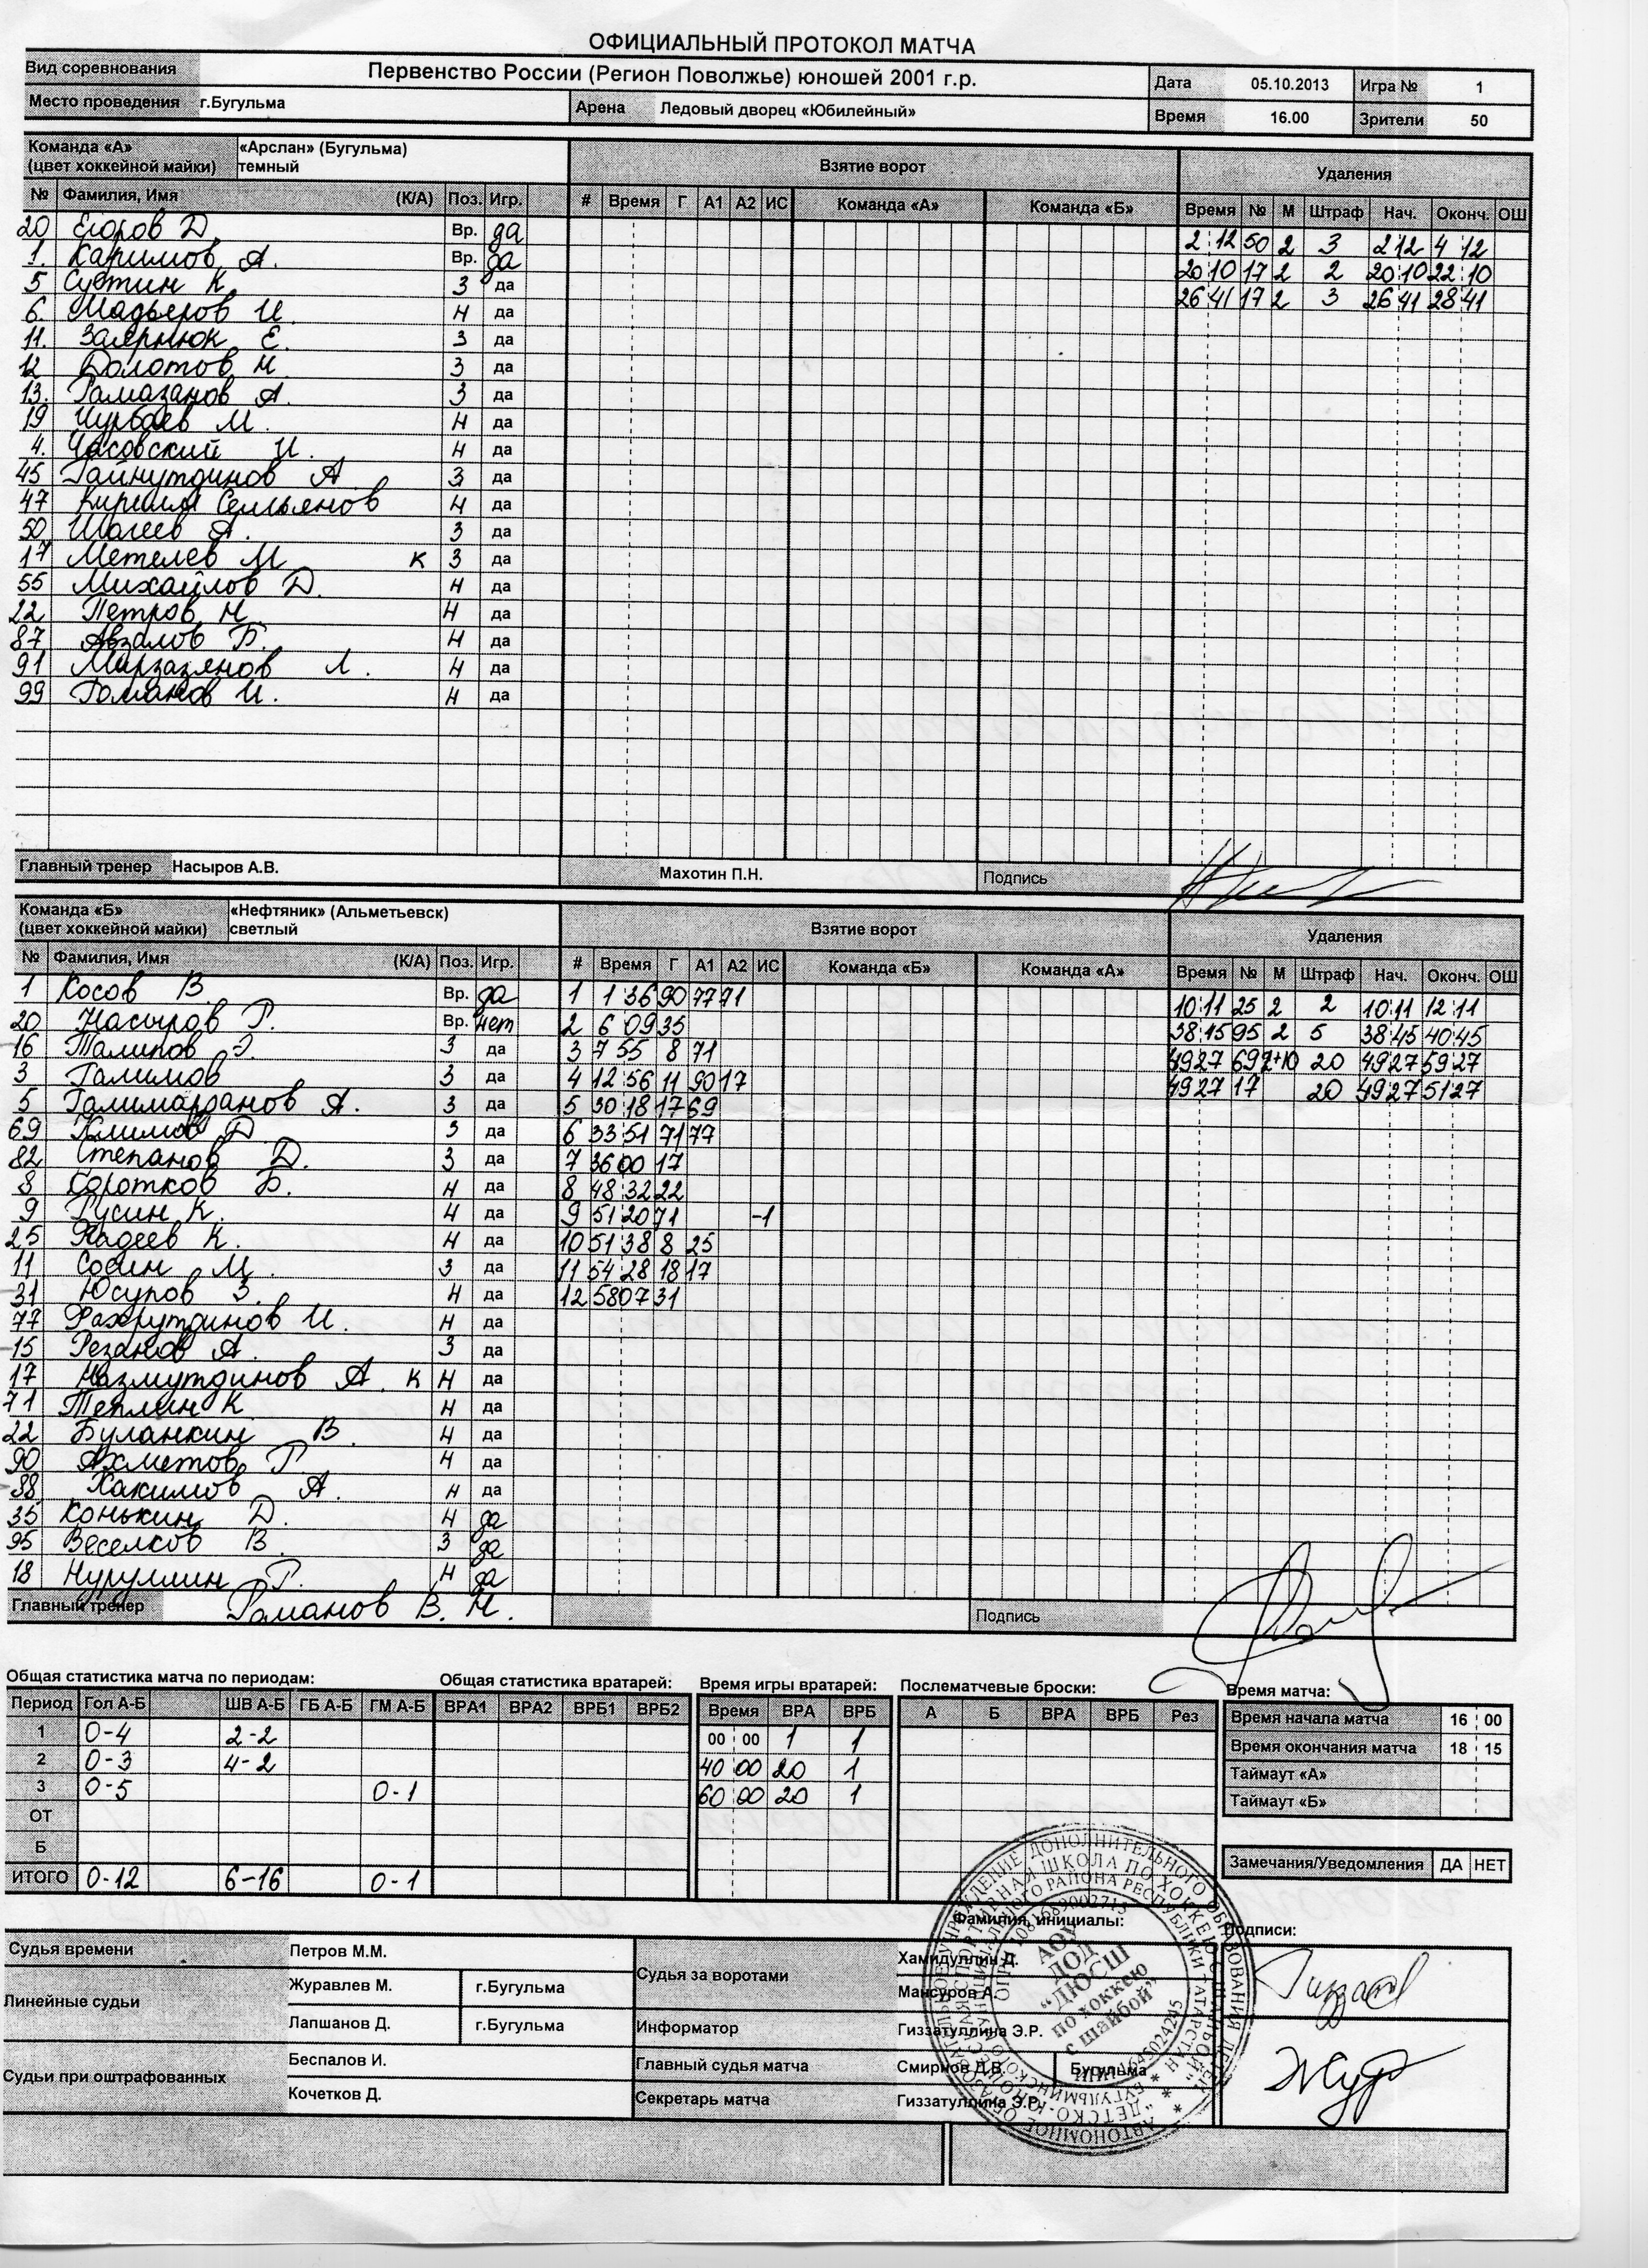 ОФИЦИАЛЬНЫЙ ПРОТОКОЛ МАТЧА
Вид соревнования Первенство России (Регион Поволжье) юношей 2001 г.р. Дата 05.10.2013 Игра № 1
Место проведения г.Бугульма Арена Ледовый дворец «Юбилейный» Время 16.00 Зрители 50
Команда «А» «Арслан» (Бугульма) Взятие ворот Удаления
(цвет хоккейной майки) темный
№ Фамилия, Имя (К/А) Поз. Игр. # Время Г А1 А2 ИС Команда «А» Команда «Б» Время № М Штраф Нач. Оконч. ОШ
20 Егоров Д. Вр. да 2:12 50 2 3 2 12 4 12
1. Каримов А. Вр. да 20:10 17 2 2 20:10 22:10
5 Суетин К. З да 26:41 17 2 3 26:41 28:41
6. Мадьяров И. Н да
11. Заярнюк Е. З да
12 Болотов Н. З да
13. Рамазанов А. З да
19 М. Н да
4. Часовский И. Н да
45 Гайнутдинов А. З да
47 Кирилл Семьянов Н да
50 Шагеев А. З да
17 Метелев М К З да
55 Михайлов Д. Н да
22 Петров Н. Н да
87 Авзалов Б. Н да
91 Л. Н да
99 Романов И. Н да
Главный тренер Насыров А.В. Махотин П.Н. Подпись
Команда «Б» «Нефтяник» (Альметьевск) Взятие ворот Удаления
(цвет хоккейной майки) светлый
№ Фамилия, Имя (К/А) Поз. Игр. # Время Г А1 А2 ИС Команда «Б» Команда «А» Время № М Штраф Нач. Оконч. ОШ
1 Косов В. Вр. да 1 1 36 90 77 71 10:11 25 2 2 10:11 12:11
20 Насыров Р. Вр. нет 2 6 09 35 38:45 95 2 5 38:45 40:45
16 Талипов З да 3 7 55 8 71 49 27 69 2+10 20 49 27 59 27
3 Галимов З да 4 12:56 11 90 17 49 27 17 20 49 27 51 27
5 Галимарданов А. З да 5 30 18 17 69
69 Климов Д. З да 6 33 51 71 77
82 Степанов Д. З да 7 36 00 17
8 Коротков Б. Н да 8 48:32 22
9 Гусин К. Н да 9 51 20 71 -1
25 Фадеев К. Н да 10 51 38 8 25
11 Софин М. З да 11 54 28 18 17
31 Юсупов З. Н да 12 58 07 31
77 Фахрутдинов И. Н да
15 Резанов А. З да
17 Назмутдинов А. К Н да
71 Теплин К Н да
22 Буланкин В. Н да
90 Ахметов Р. Н да
88 Хакимов А. Н да
35 Конькин Д. Н да
95 Веселков В. З да
18 Нуруллин Р. Н да
Главный тренер Романов В. Н. Подпись
Общая статистика матча по периодам: Общая статистика вратарей: Время игры вратарей: Послематчевые броски: Время матча:
Период Гол А-Б ШВ А-Б ГБ А-Б ГМ А-Б ВРА1 ВРА2 ВРБ1 ВРБ2 Время ВРА ВРБ А Б ВРА ВРБ Рез
1 0-4 2-2 00 00 1 1 Время начала матча 16 00
2 0-3 4-2 40 00 20 1 Время окончания матча 18 15
3 0-5 0-1 60 00 20 1 Таймаут «А»
ОТ Таймаут «Б»
Б
ИТОГО 0-12 6-16 0-1 Замечания/Уведомления ДА НЕТ
Фамилия, инициалы: Подписи:
Судья времени Петров М.М. Судья за воротами Хамидуллин Д.
Линейные судьи Журавлев М. г.Бугульма Мансуров А.
Лапшанов Д. г.Бугульма Информатор Гиззатуллина Э.Р.
Судьи при оштрафованных Беспалов И. Главный судья матча Смирнов Д.В. Бугульма
Кочетков Д. Секретарь матча Гиззатуллина Э.Р.
АОУ
ДОД
"ДЮСШ
по хоккею
с шайбой"